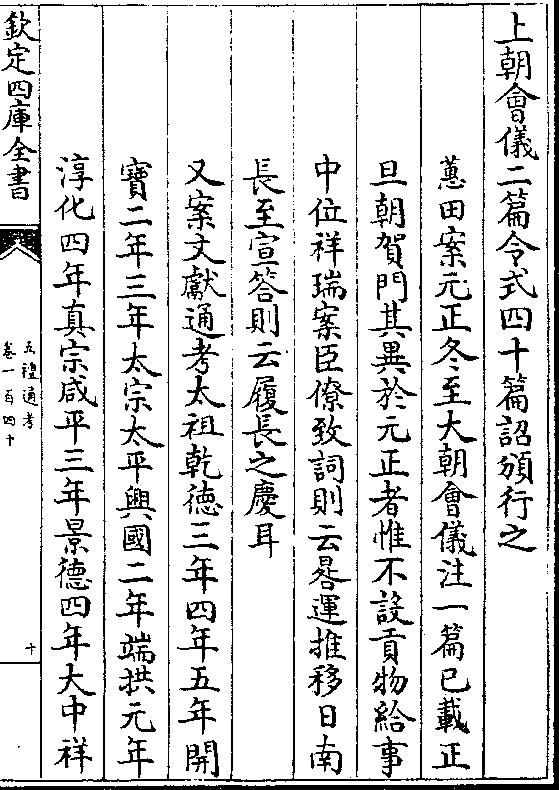 上朝會儀二篇令式四十篇詔頒行之
蕙田案元正冬至大朝會儀注一篇已載正
旦朝賀門其異於元正者惟不設貢物給事
中位祥瑞案臣僚致詞則云晷運推移日南
長至宣答則云履長之慶耳
又案文獻通考太祖乾德三年四年五年開
寶二年三年太宗太平興國二年端拱元年
淳化四年真宗咸平三年景德四年大中祥
欽定四庫全書
五禮通考
卷一百四十
十